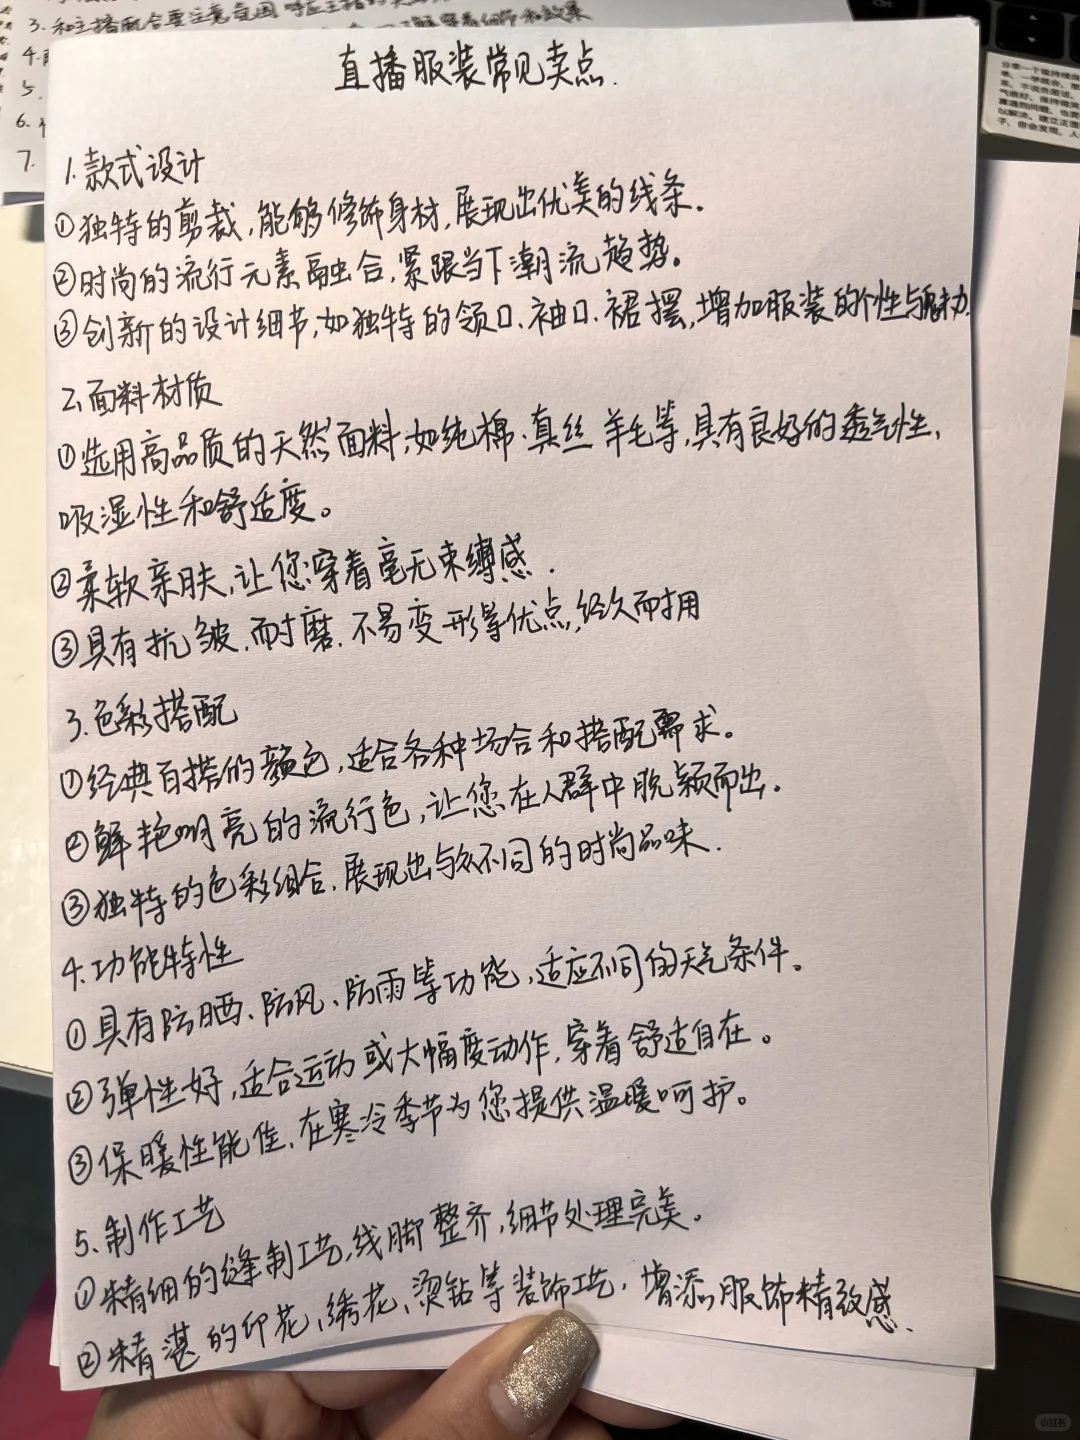 3.和主播配合要注意
4.
5.
6.
7.
直播服装常见卖点.
1.款式设计
①独特的剪裁,能够修饰身材,展现出优美的线条。
②时尚的流行元素融合,紧跟当下潮流趋势。
③创新的设计细节,如独特的领口、袖口、裙摆,增加服装的个性与魅力.
2.面料材质
①选用高品质的天然面料,如纯棉.真丝 羊毛等,具有良好的透气性,
吸湿性和舒适度。
②柔软亲肤,让您穿着毫无束缚感.
③具有抗皱.耐磨.不易变形等优点,经久耐用
3.色彩搭配
①经典百搭的颜色,适合各种场合和搭配需求。
②鲜艳明亮的流行色,让您在人群中脱颖而出。
③独特的色彩组合,展现出与众不同的时尚品味.
4.功能特性
①具有防晒、防风、防雨等功能,适应不同的天气条件。
②弹性好,适合运动或大幅度动作,穿着舒适自在。
③保暖性能佳,在寒冷季节为您提供温暖呵护。
5、制作工艺
①精细的缝制工艺,线脚整齐,细节处理完美。
②精湛的印花、绣花、烫钻等装饰工艺,增添服饰精致感.
Ctrl
小红书